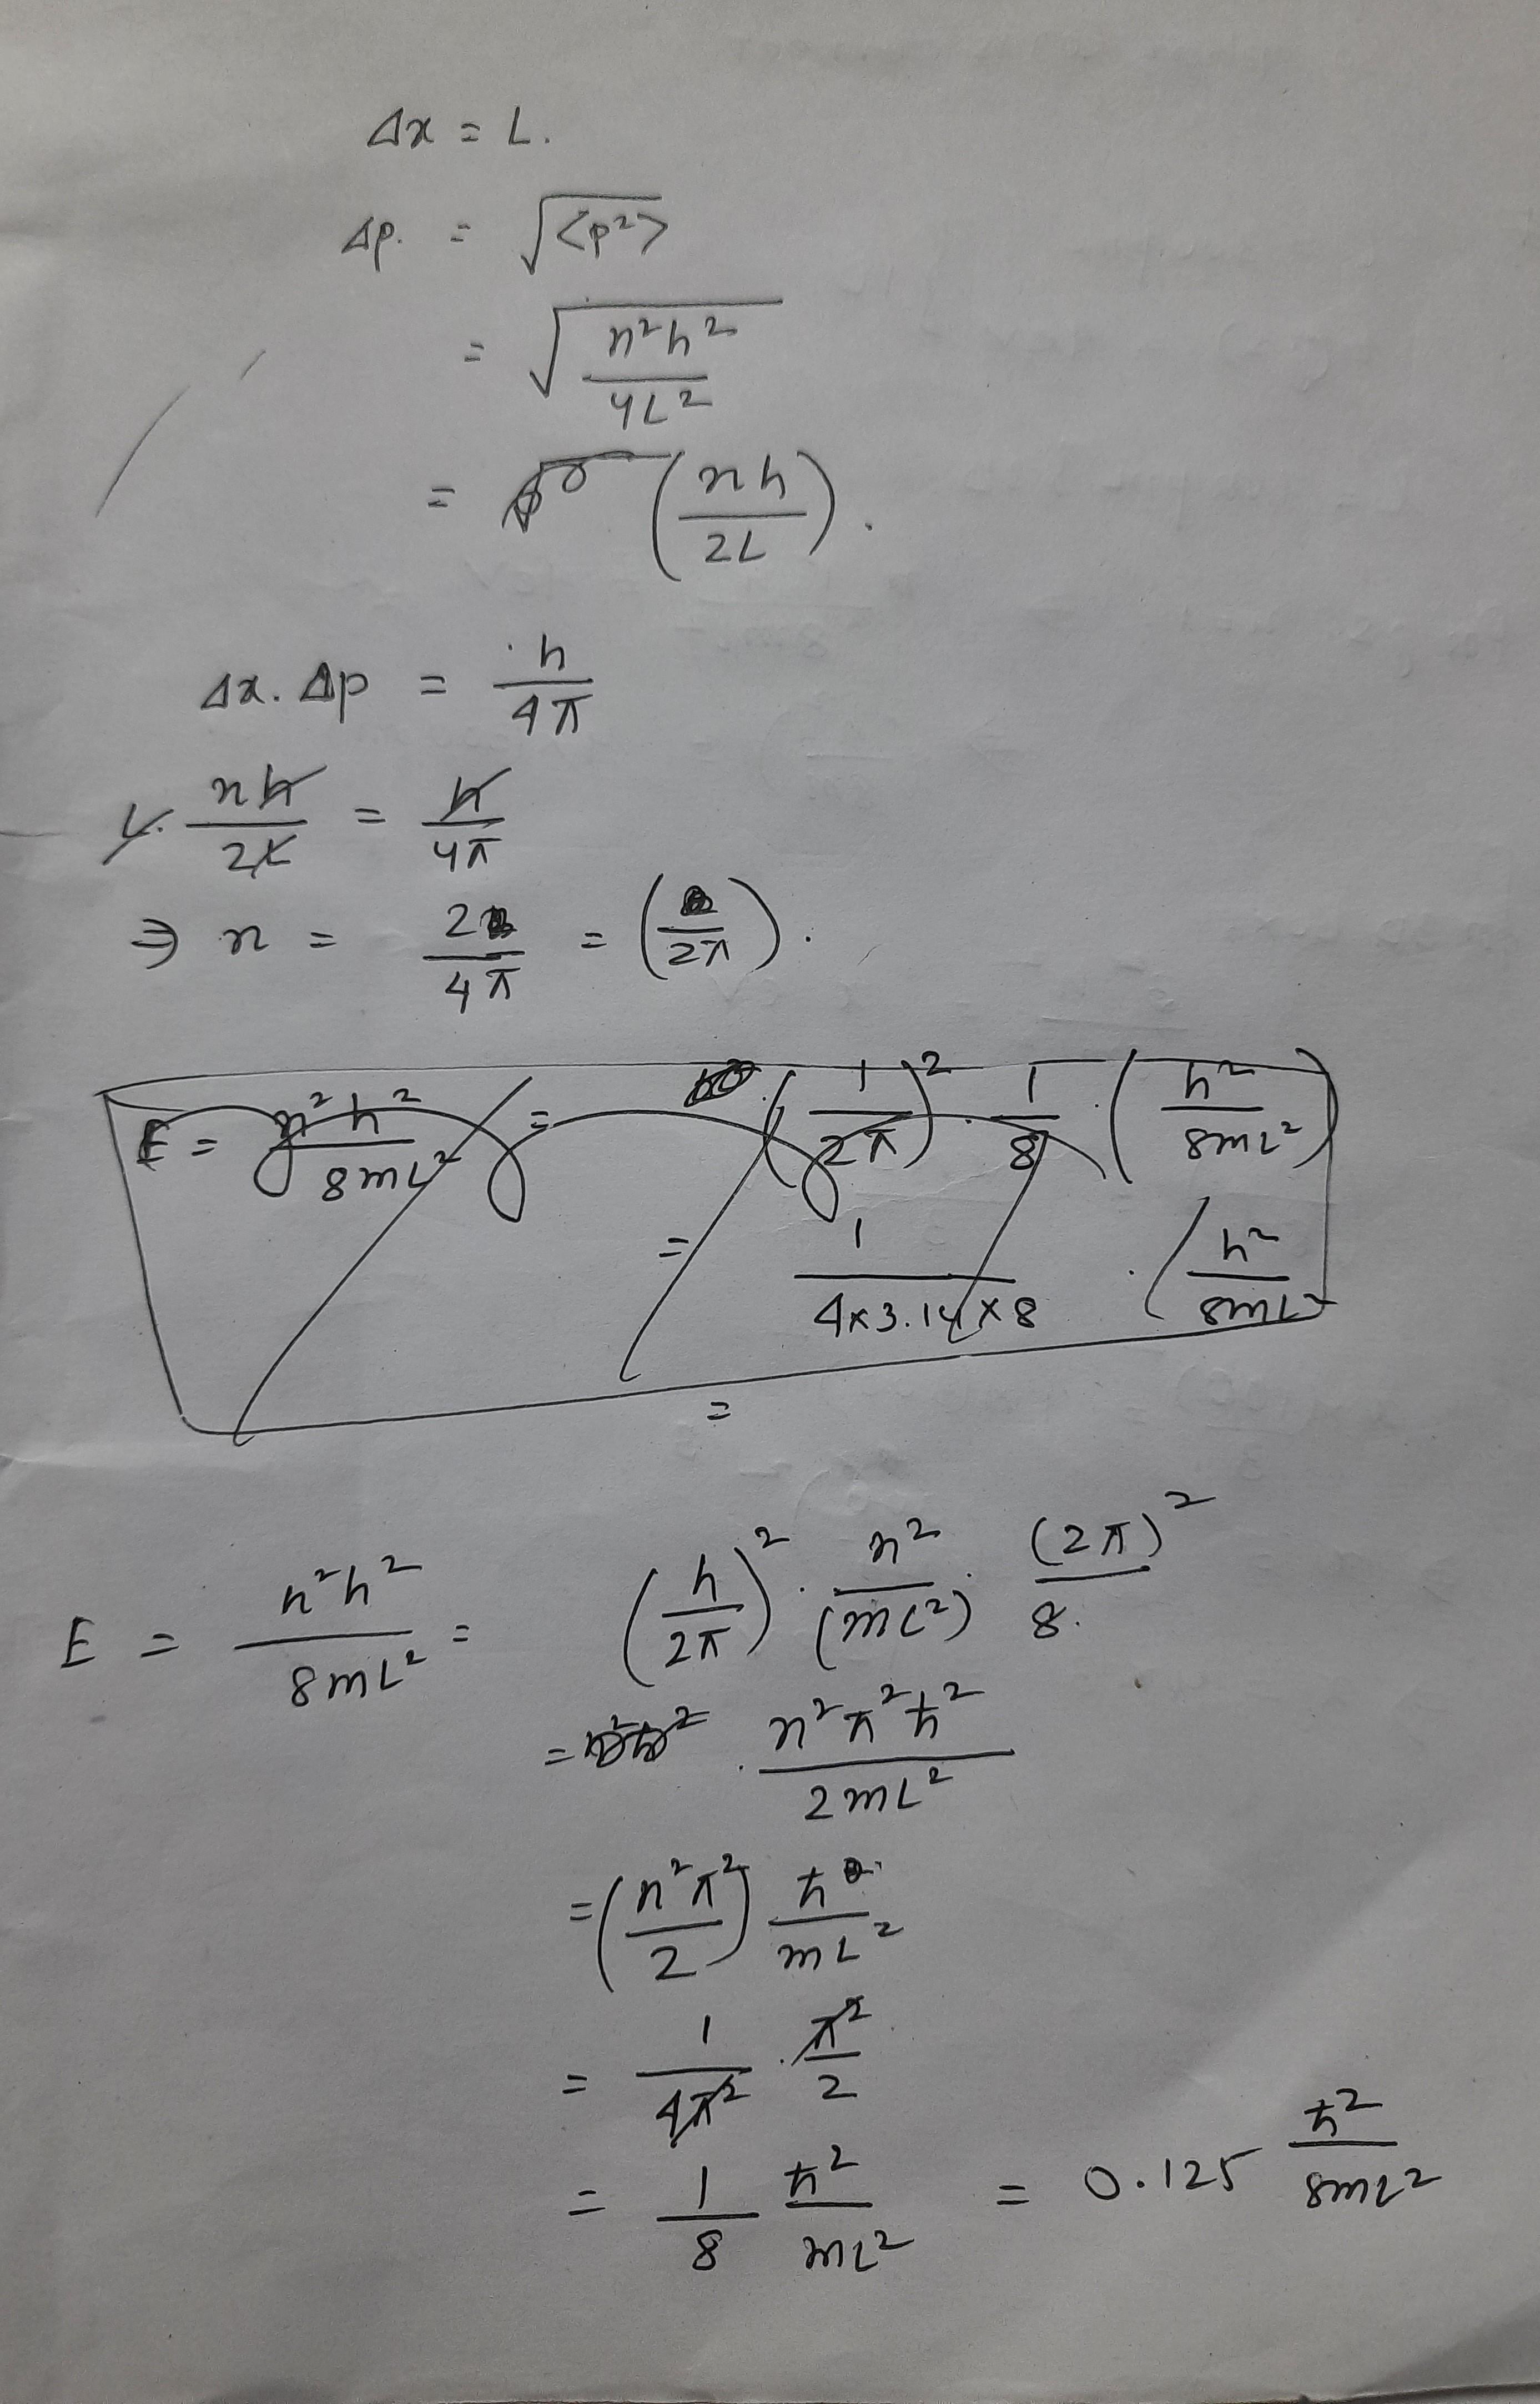 Δx = L.
Δp. = √<p²>
= √(n²h² / 4L²)
= (nh / 2L).
Δx. Δp = h / 4π
L. nh / 2L = h / 4π
⇒ n = 2 / 4π = ( / 2π).
E = n²h² / 8mL² = (1 / 2π)² . 1 / 8 . (h² / 8mL²)
= 1 / 4x3.14x8 . (h² / 8mL²
=
E = n²h² / 8mL² = (h / 2π)² . n² / (mL²) . (2π)² / 8.
= . n²π²ħ² / 2mL²
= (n²π² / 2) ħ / mL²
= 1 / 4π² . π² / 2
= 1 / 8 ħ² / mL² = 0.125 ħ² / 8mL²